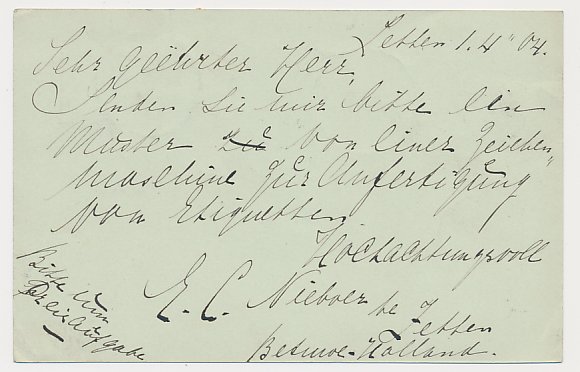 Zetten 1.4" 04.
Sehr geëhrter Herr,
Senden Sie mir bitte ein
Muster zu von einer Zeichen"
maschine zur Anfertigung
von Etiquetten
Hochachtungsvoll
E. C. Nieboer te Zetten
Betuwe-Holland.
Bitte um
Preis Aufgabe